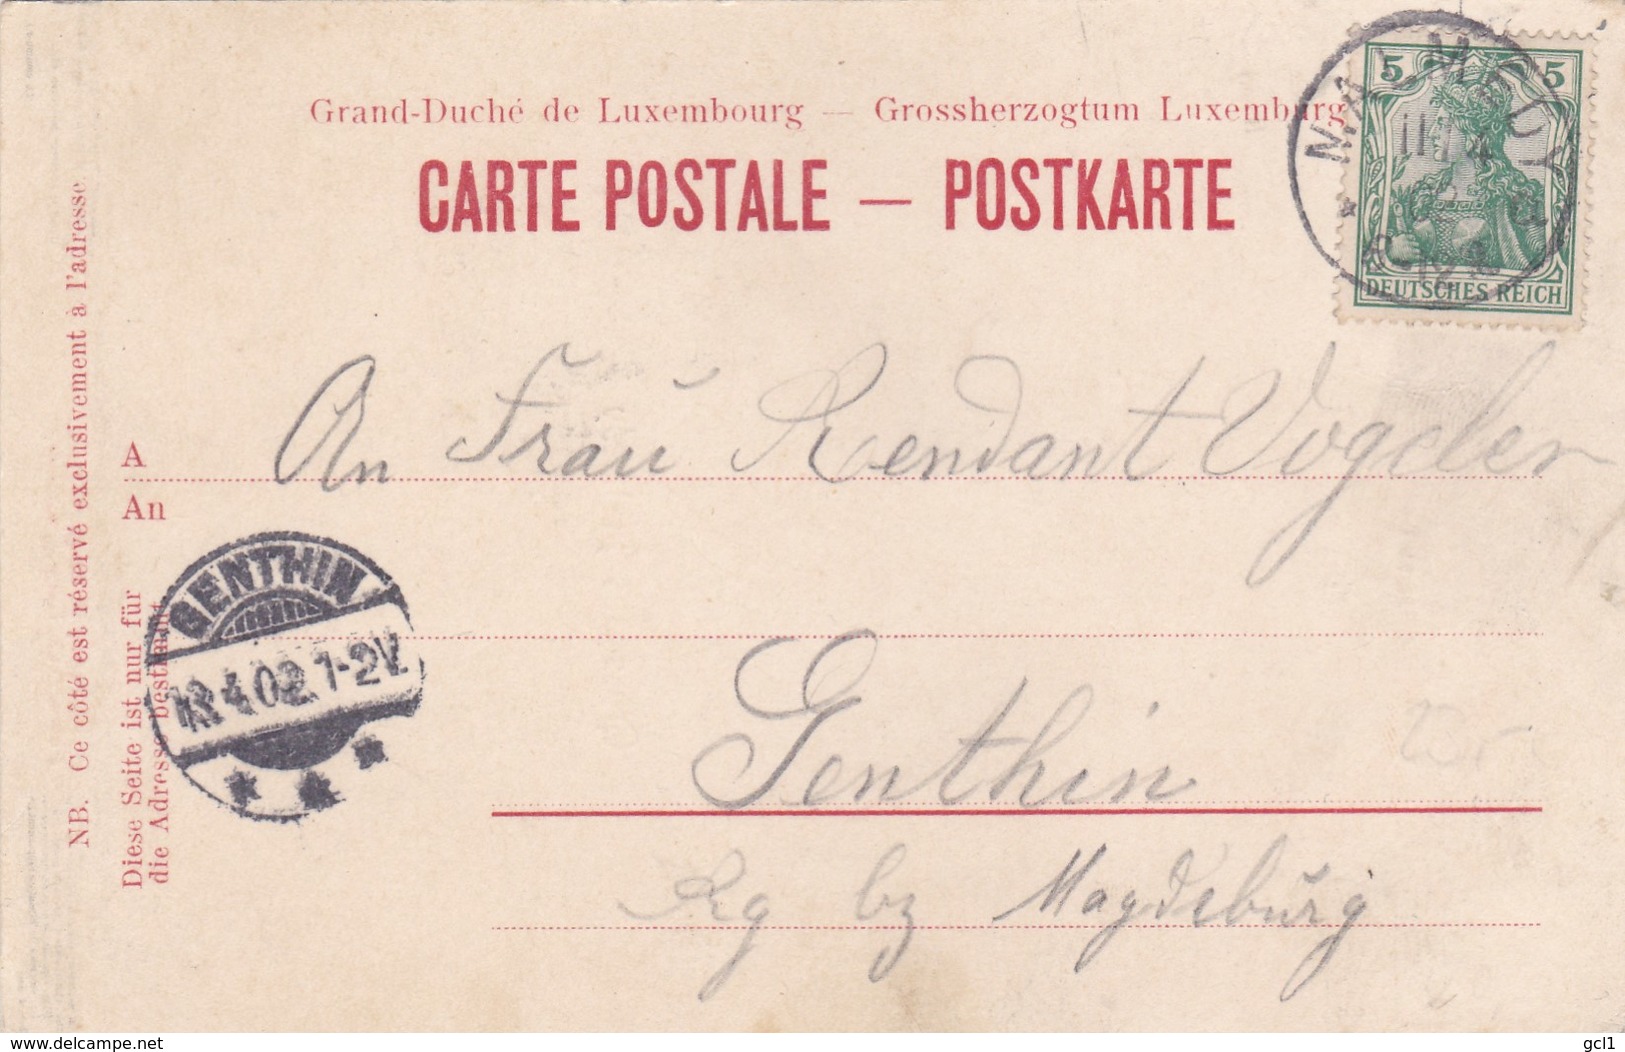 Grand-Duché de Luxembourg — Grossherzogtum Luxemburg
CARTE POSTALE — POSTKARTE
5 5
DEUTSCHES REICH
MALMEDY
NB. Ce côté est réservé exclusivement à l'adresse
Diese Seite ist nur für
die Adresse bestimmt
A
An
An Frau Rendant Vogeler
GENTHIN
13.4.02. 1-2V.
Genthin
Rg bz Magdeburg
www.delcampe.net
gcl1